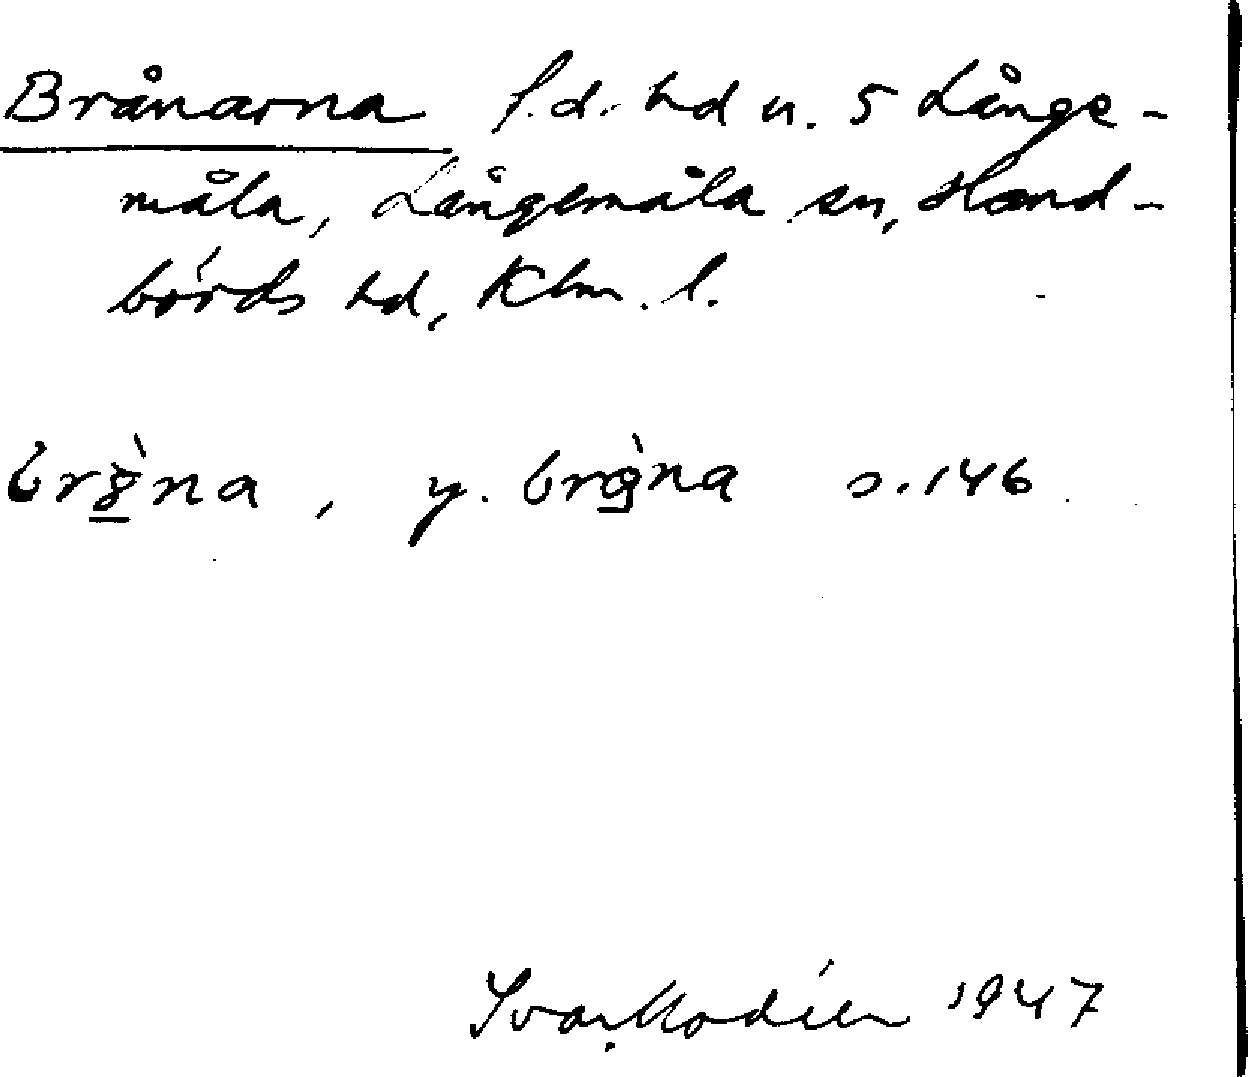 Brånarna f.d. hd u. 5 Långe-
måla, Långemåla sn, Hand-
börds hd, Klm. l.
br8̲̀na, y. brǫ̀na s. 146
Ivar Modéer 1947